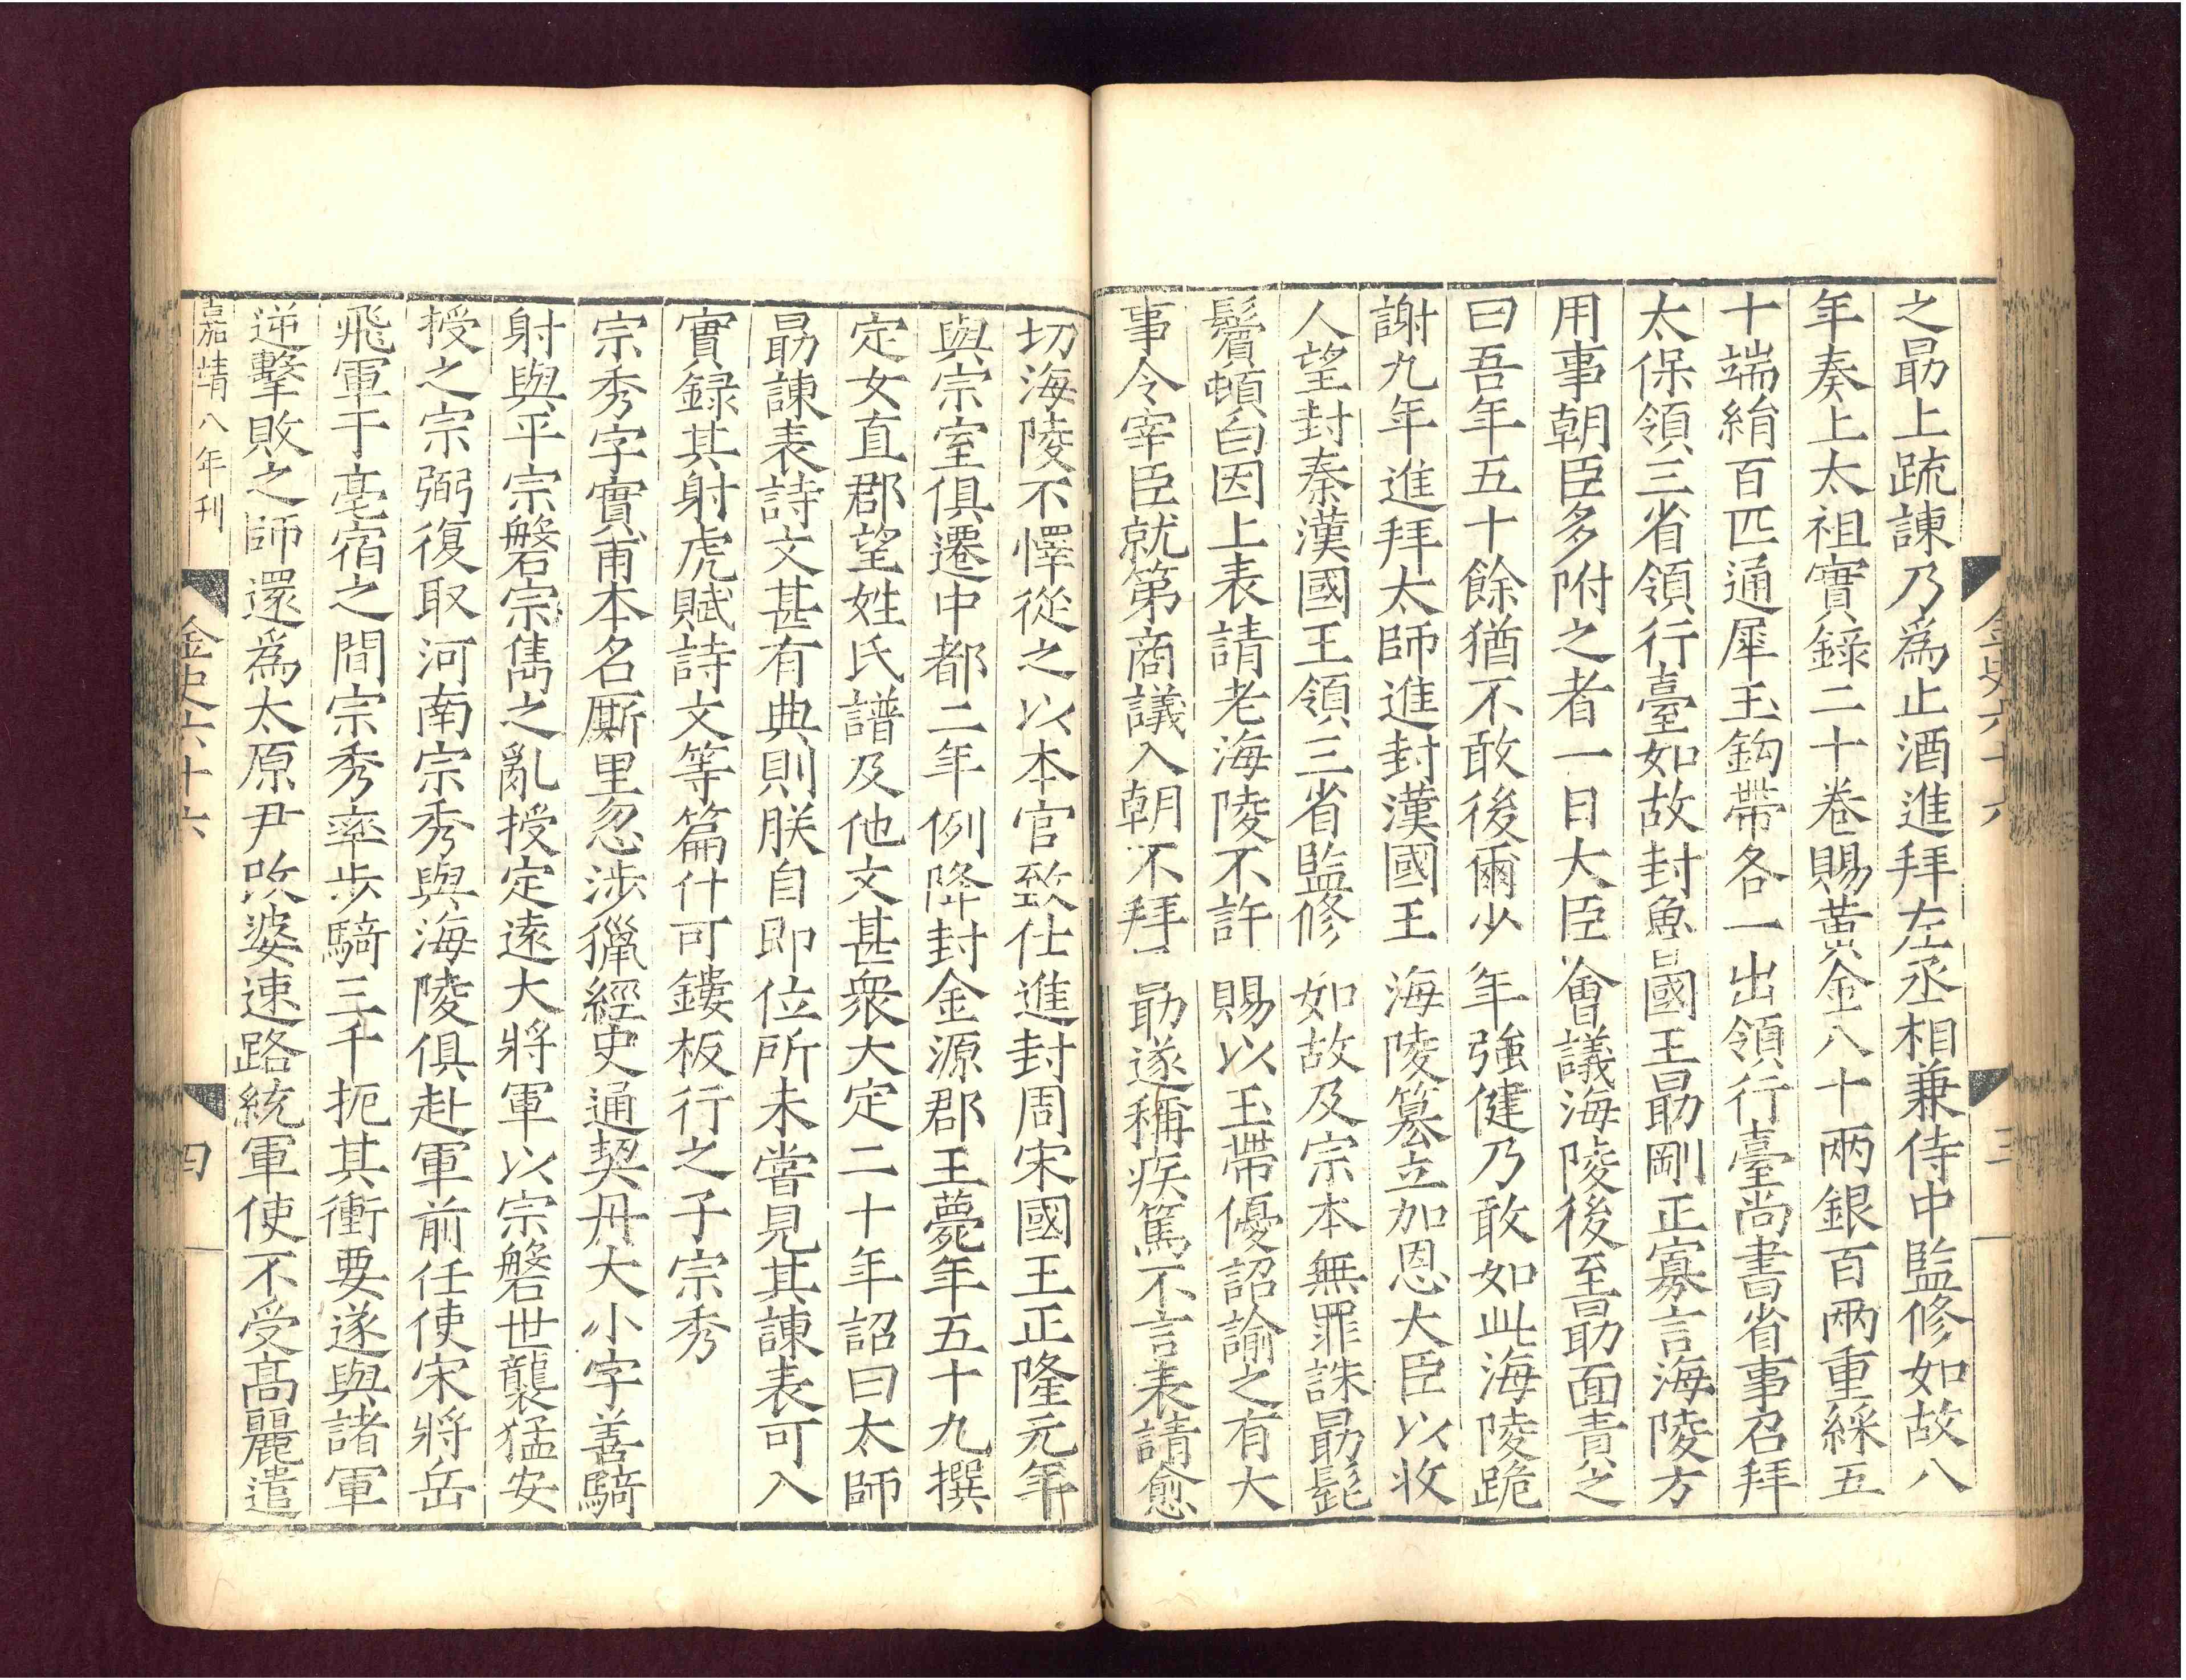 金史六十六
三
之勗上疏諫乃爲止酒進拜左丞相兼侍中監修如故八
年奏上太祖實錄二十卷賜黃金八十兩銀百兩重綵五
十端絹百匹通犀玉鈎帶各一出領行臺尚書省事召拜
太保領三省領行臺如故封魯國王勗剛正寡言海陵方
用事朝臣多附之者一日大臣會議海陵後至勗面責之
曰吾年五十餘猶不敢後爾少年強健乃敢如此海陵跪
謝九年進拜太師進封漢國王海陵篡立加恩大臣以收
人望封秦漢國王領三省監修如故及宗本無罪誅勗髭
鬢頓白因上表請老海陵不許賜以玉帶優詔諭之有大
事令宰臣就第商議入朝不拜勗遂稱疾篤不言表請愈
切海陵不懌從之以本官致仕進封周宋國王正隆元年
與宗室俱遷中都二年例降封金源郡王薨年五十九撰
定女直郡望姓氏譜及他文甚衆大定二十年詔曰太師
勗諫表詩文甚有典則朕自即位所未嘗見其諫表可入
實録其射虎賦詩文等篇什可鏤板行之子宗秀
宗秀字實甫本名厮里忽涉獵經史通契丹大小字善騎
射與平宗磐宗雋之亂授定遠大將軍以宗磐世襲猛安
授之宗弼復取河南宗秀與海陵俱赴軍前任使宋將岳
飛軍于亳宿之間宗秀率步騎三千扼其衝要遂與諸軍
逆擊敗之師還爲太原尹改婆速路統軍使不受高麗遣
嘉靖八年刊
金史六十六
四